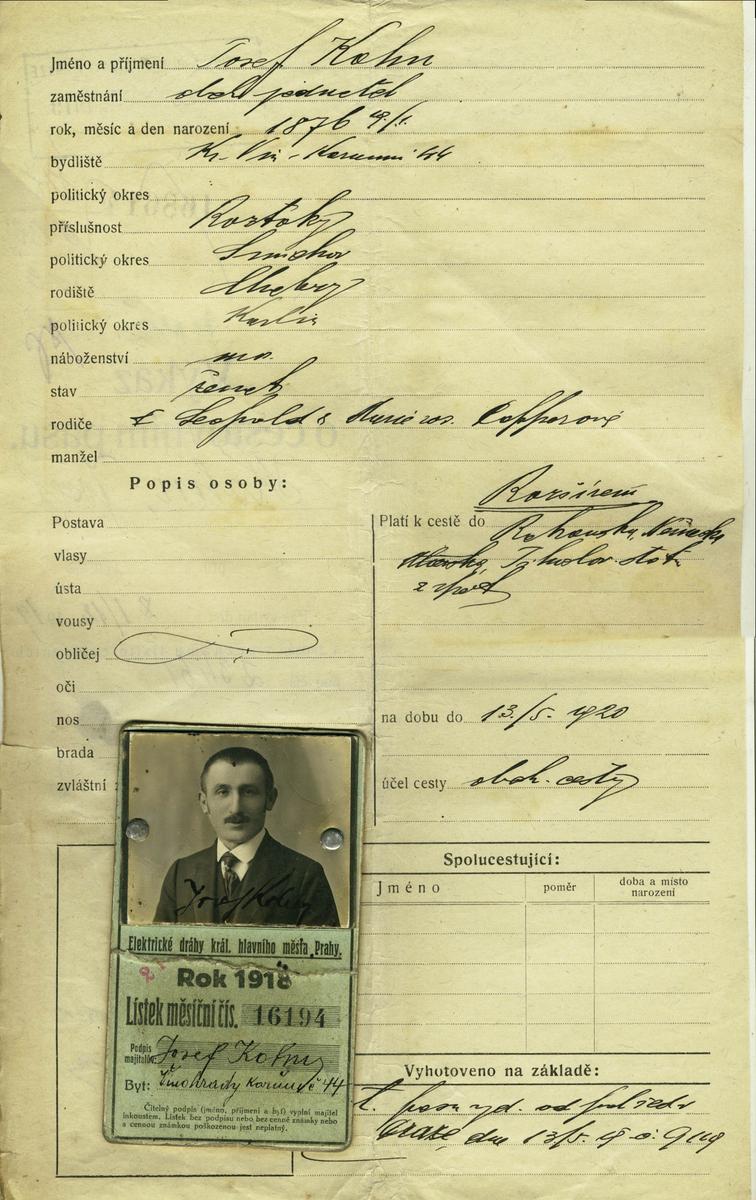 Jméno a příjmení Josef Kohn
zaměstnání obch jednatel
rok, měsíc a den narození 1876
bydliště Kr. Vin - Korunni 44
politický okres
příslušnost Roztoky
politický okres Smichov
rodiště
politický okres Karlin
náboženství mo.
stav ženat
rodiče Leopold & Marie roz.
manžel
Popis osoby:
Rozšíreni
Postava
Platí k cestě do Německa
vlasy
ústa
vousy
obličej
oči
nos
na dobu do 13./5. 1920
brada
zvláštní
účel cesty obch. cesty
Spolucestující:
Jméno poměr doba a místo narození
Josef Kohn
Elektrické dráhy král. hlavního města Prahy.
Rok 1918
Lístek měsíční čís. 16194
Podpis majitelův: Josef Kohn
Byt: Vinohrady Korunní 44
Čitelný podpis (jméno, příjmení a byt) vyplní majitel
inkoustem. Lístek bez podpisu nebo bez cenné známky nebo
s cennou známkou poškozenou jest neplatný.
Vyhotoveno na základě: